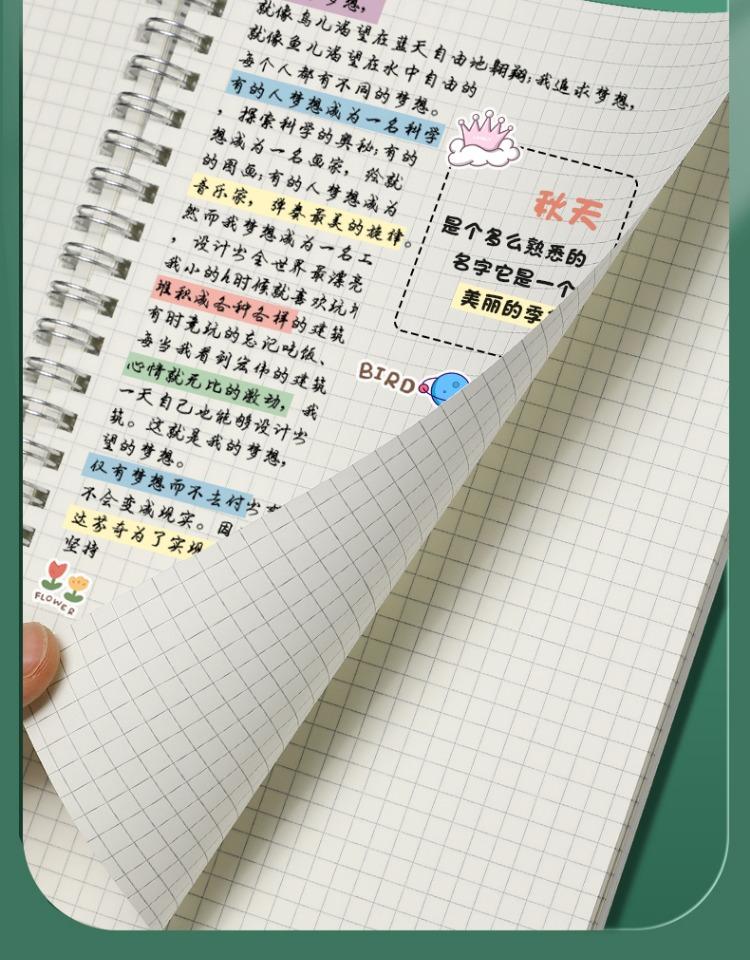 梦想，
就像鸟儿渴望在蓝天自由地翱翔；我追求梦想，
就像鱼儿渴望在水中自由的
每个人都有不同的梦想。
有的人梦想成为一名科学
，探索科学的奥秘；有的
想成为一名画家，绘就
的图画；有的人梦想成为
音乐家，弹奏最美的旋律。
然而我梦想成为一名工
，设计出全世界最漂亮
我小的时候就喜欢玩
堆积成各种各样的建筑
有时竟玩的忘记吃饭、
每当我看到宏伟的建筑
心情就无比的激动，我
一天自己也能够设计出
筑。这就是我的梦想，
望的梦想。
仅有梦想而不去付出
不会变成现实。因
达芬奇为了实现
坚持
秋天
是个多么熟悉的
名字它是一个
美丽的季
BIRD
FLOWER